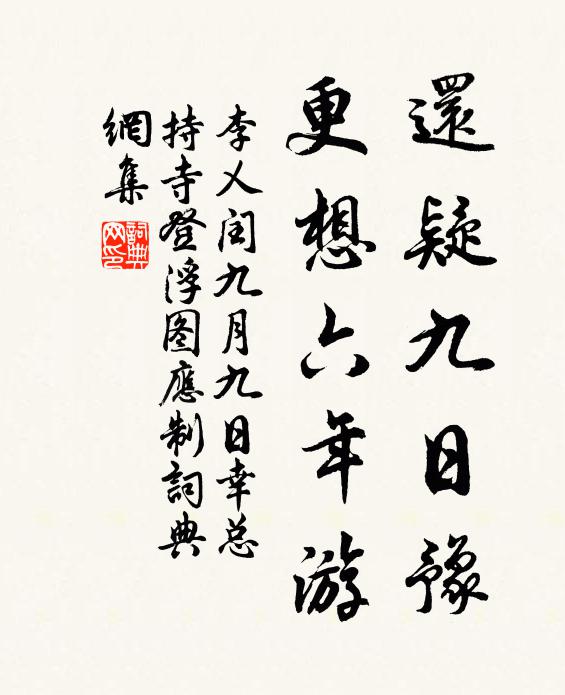 還疑九日豫
更想六年游
李乂闰九月九日幸总
持寺登浮图應制詞典
網集
詞典网印